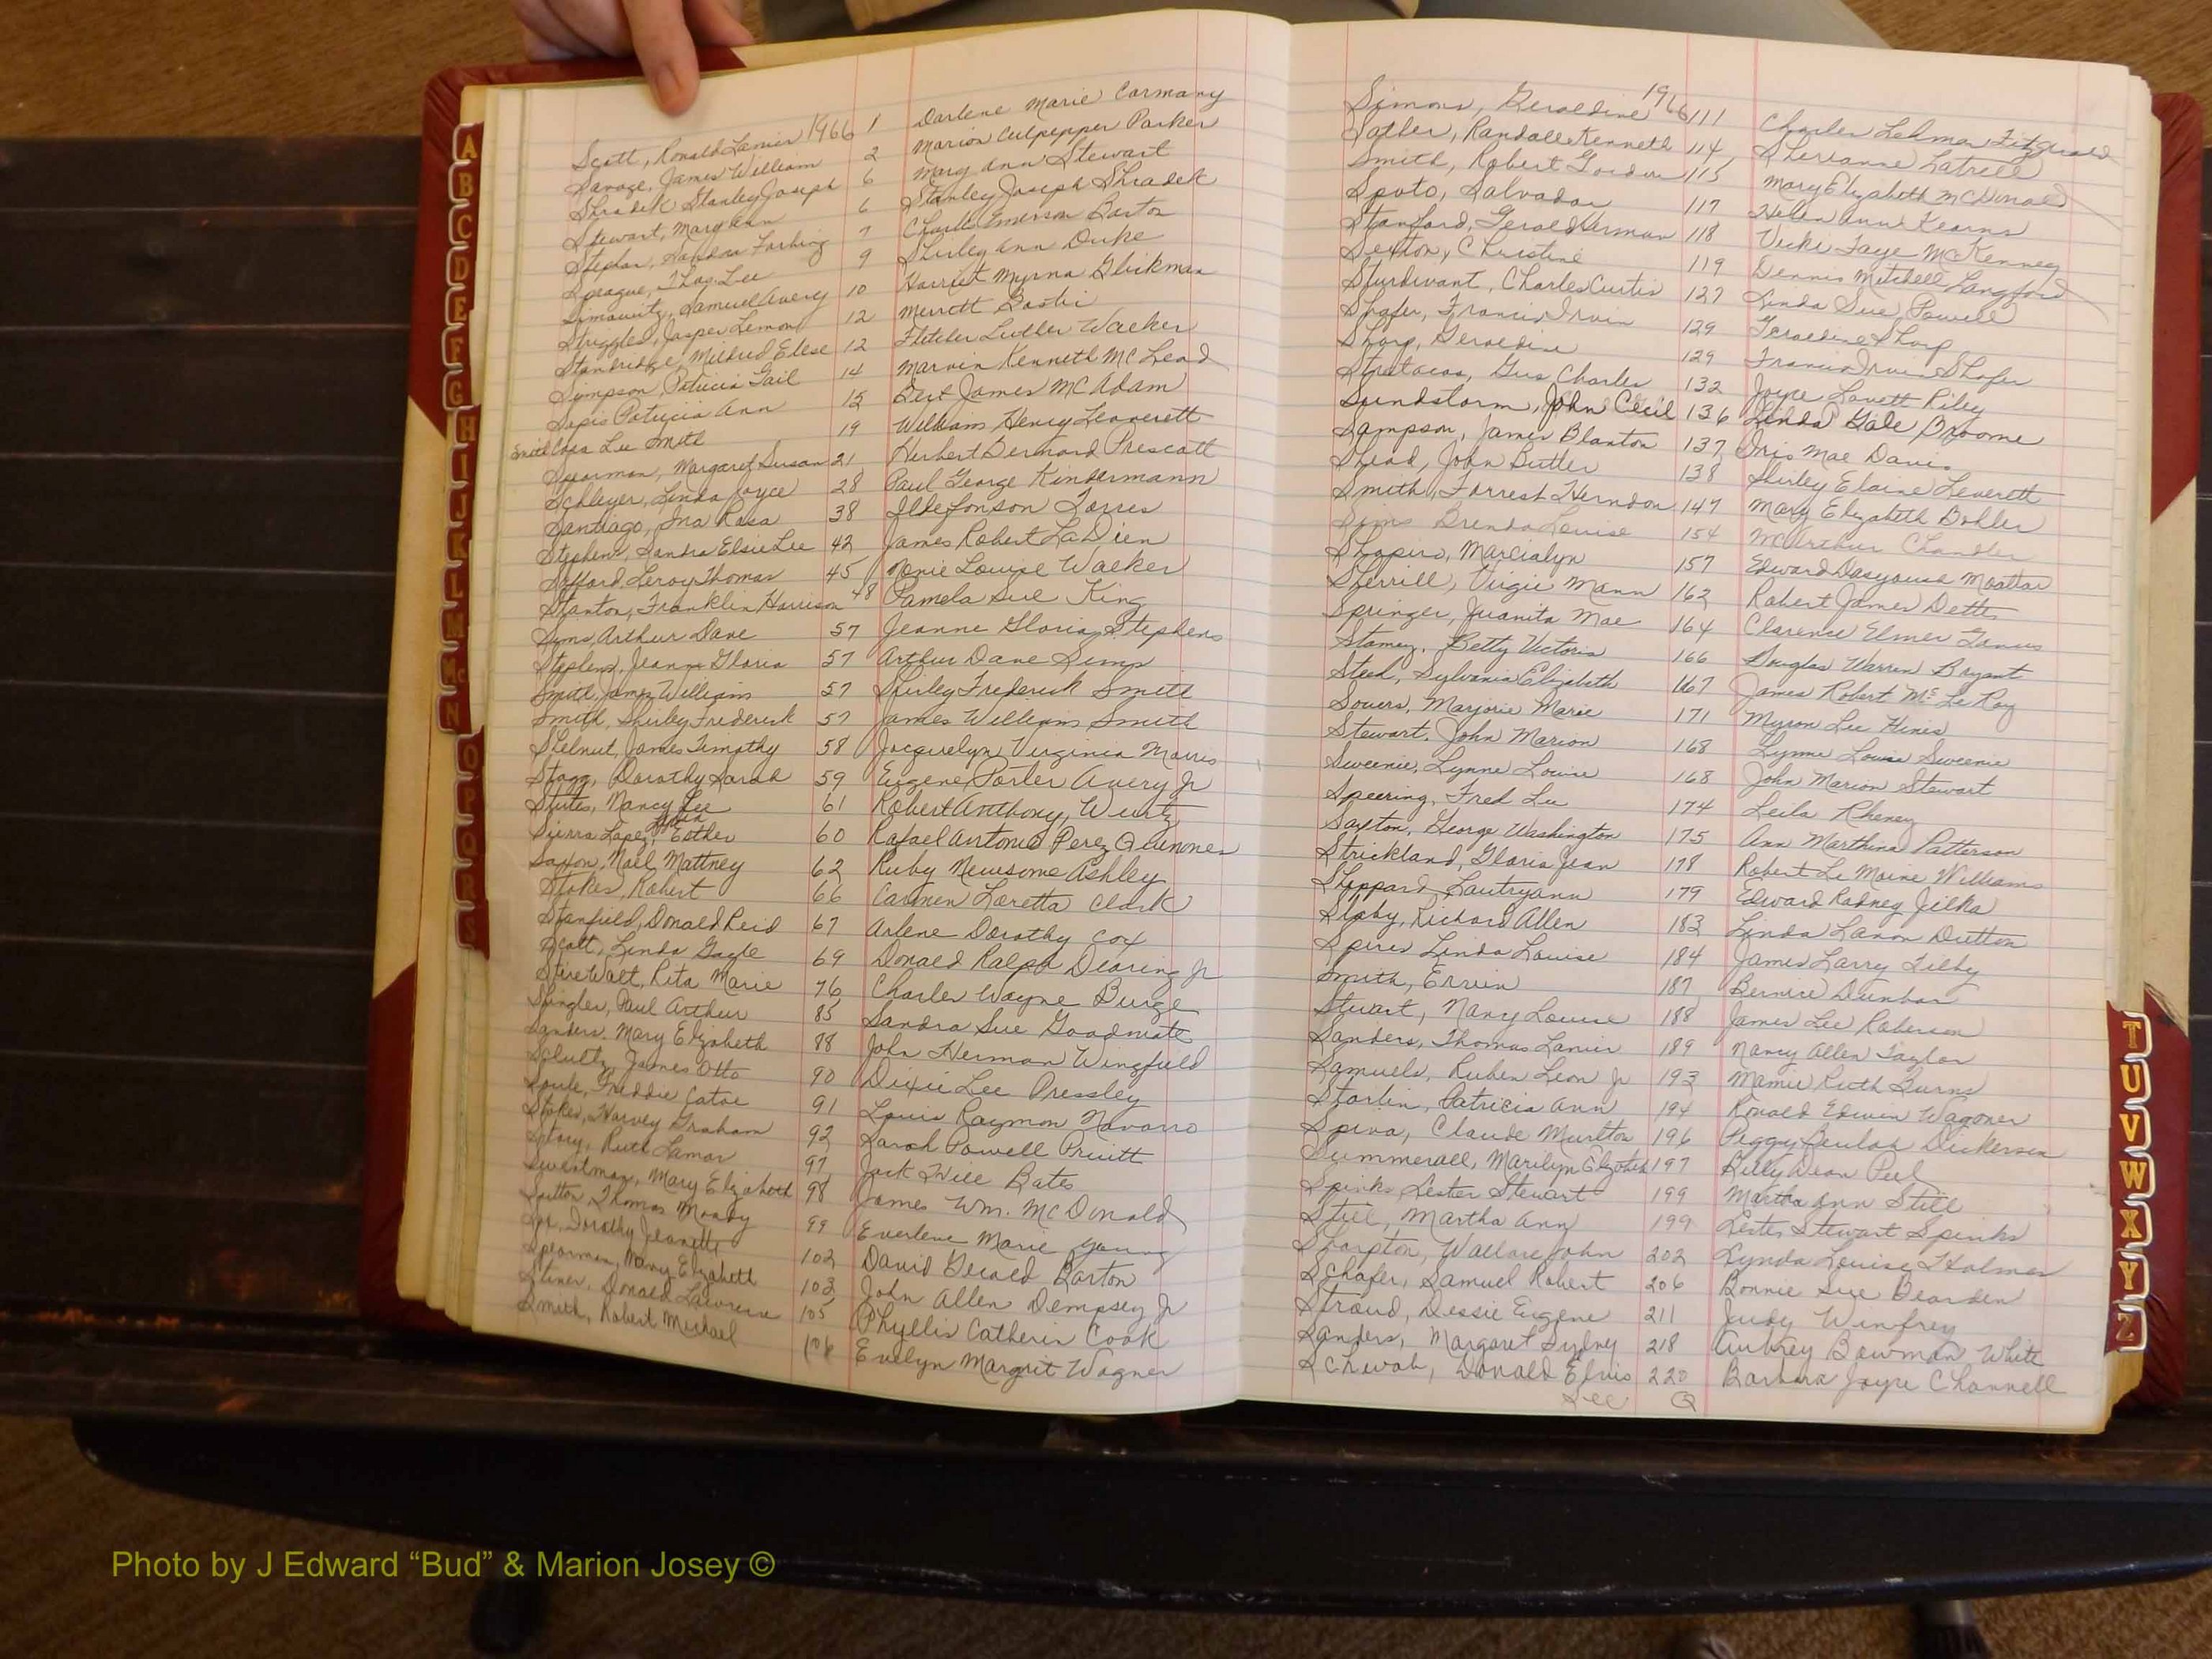 Scott, Ronald Lanier 1966 1 Darlene Marie Cormany
Savage, James William 2 Marion Culpepper Parker
Shradek Stanley Joseph 6 Mary Ann Stewart
Stewart, Mary Ann 6 Stanley Joseph Shradek
Stephan, Sandra 7 Charles Emerson Barton
Sprague, Thos. Lee 9 Shirley Ann Duke
Simowitz, Samuel Avery 10 Harriet Myrna Glickman
Struggles, Jasper Lemon 12 Merrett
Standridge, Mildred Elese 12 Fletcher Luther Walker
Simpson, Patricia Gail 14 Marvin Kenneth McLeod
Patricia Ann 15 Bert James McAdam
Smith Lee Smith 19 William Henry Leaverett
Spearman, Margaret Susan 21 Herbert Bernard Prescott
Schleyer, Linda Joyce 28 Paul George Kindermann
Santiago, Ina Rosa 38 Ildefonson Torres
Stephens, Sandra Elsie Lee 42 James Robert LaDien
Safford, Leroy Thomas 45 Nonie Louise Walker
Stanton, Franklin Harrison 48 Pamela Sue King
Sims, Arthur Dane 57 Jeanne Gloria Stephens
Stephens, Jeanne Gloria 57 Arthur Dane Sims
Smith, James William 57 Shirley Frederick Smith
Smith, Shirley Frederick 57 James William Smith
Shelnut, James Timothy 58 Jacquelyn Virginia Morris
Stagg, Dorothy Sarah 59 Eugene Porter Avery Jr
Stutes, Nancy Lee 61 Robert Anthony Wurtz
Sierra Lopez, Esther 60 Rafael Antonio Perez Quinones
Saxon, Nail Mattney 62 Ruby Newsome Ashley
Stokes, Robert 66 Carmen Loretta Clark
Stanfield, Donald Reid 67 Arlene Dorothy Cox
Scott, Linda Gayle 69 Donald Ralph Dearing Jr
StireWalt, Rita Marie 76 Charles Wayne Burge
Shingler, Paul Arthur 85 Sandra Sue Goodnite
Sanders, Mary Elizabeth 88 John Herman Wingfield
Schultz, James Otto 90 Dixie Lee Pressley
Soule, Freddie Catoe 91 Louis Raymon Navarro
Stokes, Harvey Graham 92 Sarah Powell Pruitt
Story, Ruth Lamar 97 Jack Will Bates
Sweatman, Mary Elizabeth 98 James Wm. McDonald
Sutton Thomas Moody 99 Everlene Marie Young
Dorothy Jeanette 102 David Gerald Barton
Spearman, Mary Elizabeth 103 John Allen Dempsey Jr
Stiner, Donald Lawrence 105 Phyllis Catherin Cook
Smith, Robert Michael 106 Evelyn Margrit Wagner
Simons, Geraldine 1966 111 Charles Lehman Fitzgerald
Sather, Randall Kenneth 114 Sherianne Latrell
Smith, Robert Gordon 115 Mary Elizabeth McDonald
Spoto, Salvador 117 Helen Anne Kearns
Stanford, Gerald Harman 118 Vicki Faye McKenney
Sexton, Christine 119 Dennis Mitchell Langford
Sturdivant, Charles Curtis 127 Linda Sue Powell
Shafer, Francis Irvin 129 Geraldine Sharp
Sharp, Geraldine 129 Francis Irvin Shafer
Stratacos, Gus Charles 132 Joyce Lavett Riley
Sundstorm, John Cecil 136 Linda Gale Broome
Sampson, James Blanton 137 Doris Mae Davis
Shead, John Butler 138 Shirley Elaine Leverett
Smith, Forrest Herndon 147 Mary Elizabeth Bohler
Sims Brenda Louise 154 McArthur Chandler
Shapiro, Marcialyn 157 Edward
Sherrill, Virgie Mann 162 Robert James Detth
Springer, Juanita Mae 164 Clarence Elmer
Stamey, Betty Victoria 166 Douglas Warren Bryant
Steed, Sylvania Elizabeth 167 James Robert McLeRoy
Souers, Marjorie Marie 171 Myron Lee Hines
Stewart, John Marion 168 Lynne Louise Sweenie
Sweenie, Lynne Louise 168 John Marion Stewart
Speering, Fred Lee 174 Leila Rheney
Saxton, George Washington 175 Ann Marthina Patterson
Strickland, Gloria Jean 178 Robert Le Moine Williams
Sheppard Lautryann 179 Edward Rodney Jilka
Richard Allen 183 Linda Lanon Dutton
Spires Linda Louise 184 James Larry Tilby
Smith, Ervin 187 Bernice Dunbar
Stewart, Nancy Louise 188 James Lee Roberson
Sanders, Thomas Lanier 189 Nancy Allen Taylor
Samuels, Ruben Leon Jr 193 Mamie Ruth Burns
Starlin, Patricia Ann 194 Ronald Edwin Wagoner
Spiva, Claude Murlton 196 Peggy Beulah Dickerson
Summerall, Marilyn Elizabeth 197 Billy Dean Peel
Spinks Lester Stewart 199 Martha Ann Still
Still, Martha Ann 199 Lester Stewart Spinks
Sharpton, Wallace John 202 Lynda Louise Holmes
Schafer, Samuel Robert 206 Bonnie Sue Bearden
Stroud, Dessie Eugene 211 Judy Winfrey
Sanders, Margaret Sydney 218 Aubrey Bowman White
Schwab, Donald Elvis 220 Barbara Joyce Channell
See Q
A
B
C
D
E
F
G
H
I
J
K
L
M
Mc
N
O
P
Q
R
S
T
U
V
W
X
Y
Z
Photo by J Edward “Bud” & Marion Josey ©